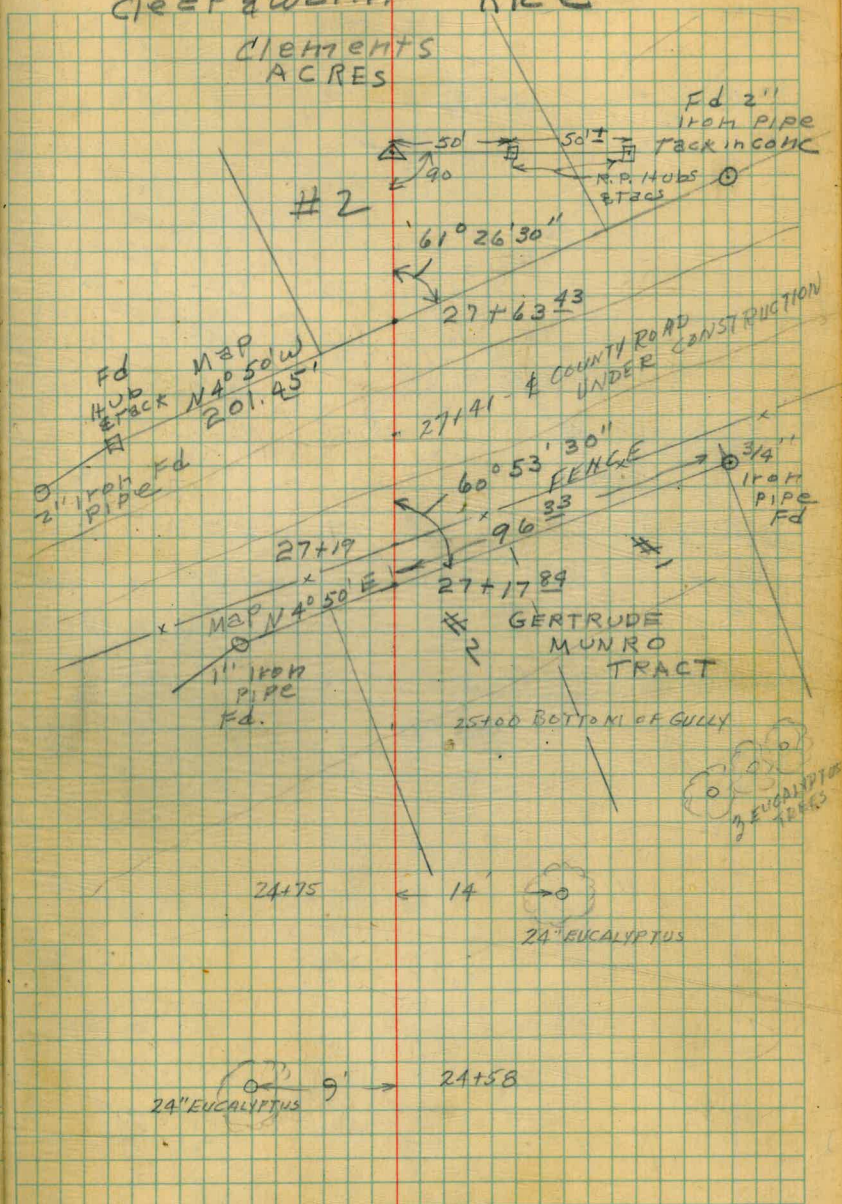 Clements
ACRES
Fd 2"
Iron Pipe
Tack in conc
50'
50'±
90
R.P. Hubs
& Tacs
#2
61° 26' 30"
27+63 43
Map
N4° 50' W
201.45'
Fd
Hub
& Tack
27+41 - ℄ COUNTY ROAD
UNDER CONSTRUCTION
2" Iron Fd
Pipe
60° 53' 30"
FENCE
3/4"
Iron
Pipe
Fd
96 33
27+19
#1
Map N4° 50' E
27+17 84
#2
GERTRUDE
MUNRO
TRACT
1" Iron
Pipe
Fd.
25+00 BOTTOM OF GULLY
3 EUCALYPTUS
TREES
24+75
14'
24" EUCALYPTUS
9'
24+58
24" EUCALYPTUS